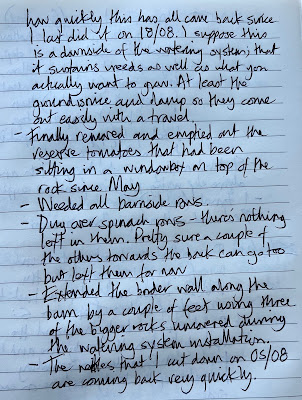 how quickly this has all come back since
I last did it on 18/08. I suppose this
is a downside of the watering system; that
it sustains weeds as well as what you
actually want to grow. At least the
ground is nice and damp so they come
out easily with a trowel.
- Finally removed and emptied out the
reserve tomatoes that had been
sitting in a windowbox on top of the
rock since May
- Weeded all barnside rows.
- Dug over spinach rows - there's nothing
left in them. Pretty sure a couple of
the others towards the back can go too
but left them for now
- Extended the border wall along the
barn by a couple of feet using three
of the bigger rocks uncovered during
the watering system installation.
- The nettles that I cut down on 05/08
are coming back very quickly.